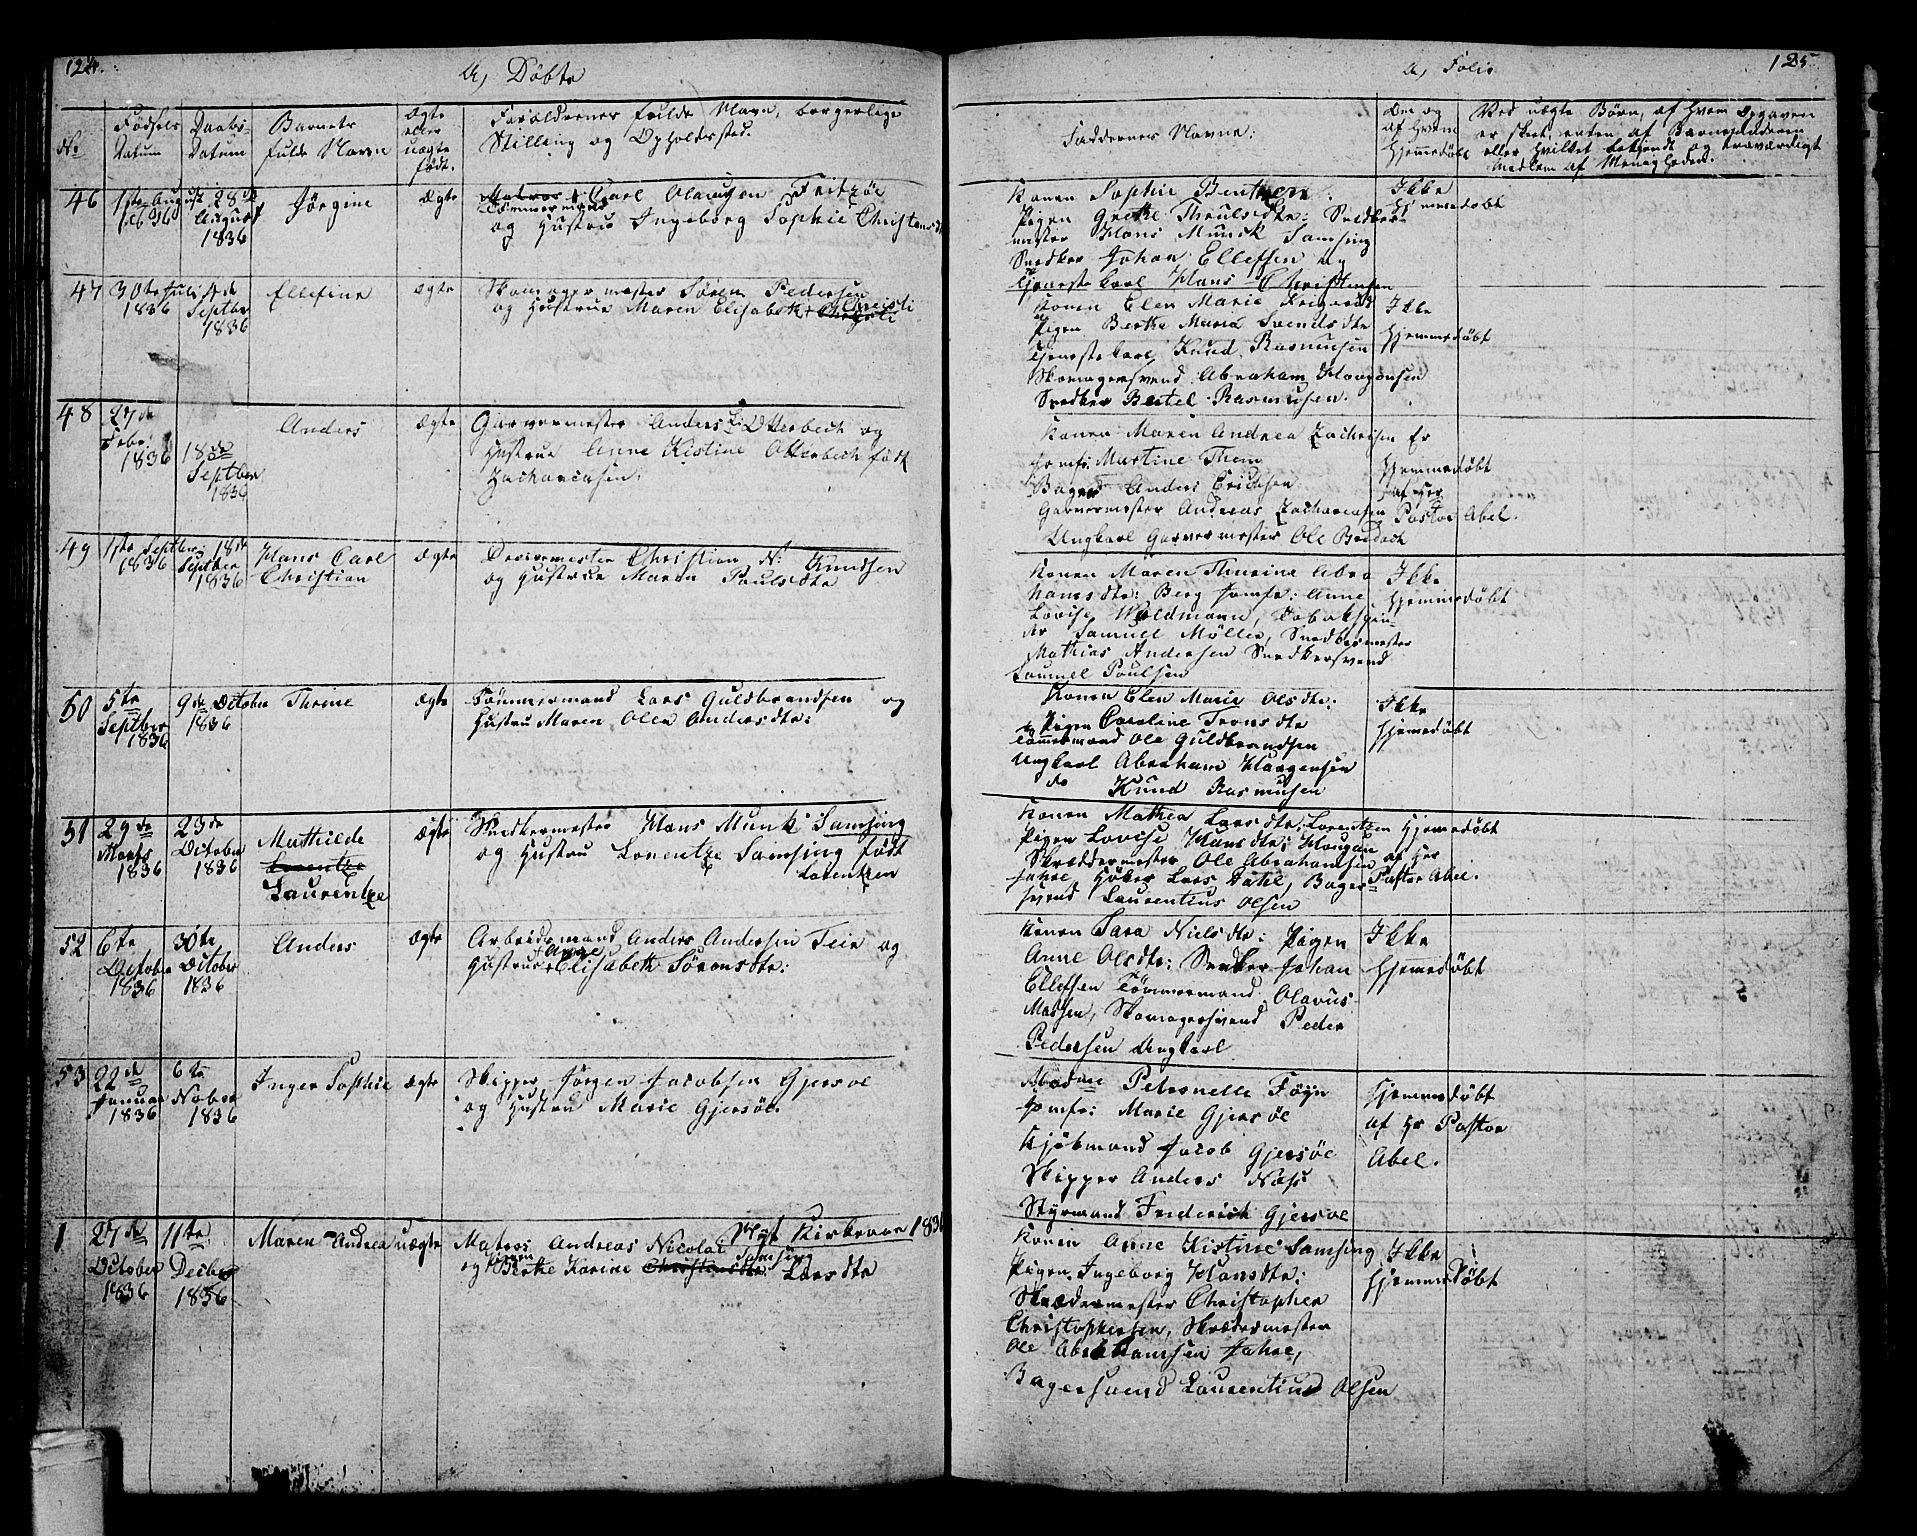 124.
a, Döbte
No
Födsels Datum
Daabs- Datum
Barnets fulde Navn
Ægte eller uægte födt.
Foraeldrenes fulde Navn, borgerlige Stilling og Opholdssted.
46
1ste August 1836
28de August 1836
Jörgine
Ægte
Matros Carl Olausen Fritzöe
Tömmermand
og Hustru Ingeborg Sophie Christensd
47
30te Juli 1836
4de Septbr 1836
Ellefine
Ægte
Skomagermester Sören Pedersen
og Hustrue Maren Elisabeth Christi
48
27de Febr: 1836
18de Septber 1836
Anders
Ægte
Garvermester Anders L. Otterbech og
Hustrue Anne Kistine Otterbech födt
Zachariasen.
49
1ste Septbr 1836
18de Septber 1836
Hans Carl Christian
Ægte
Christian N. Knudsen
og Hustrue Maren Poulsdtr
50
5te Septber 1836
9de October 1836
Thrine
Ægte
Tömmermand Lars Guldbrandsen og
Hustru Maren Olea Andersdtr:
51
29de Marts 1836
23de October 1836
Mathilde Lorentze Laurentze
Ægte
Snedkermester Hans Munk Samsing
og Hustru Lorentze Samsing födt
Lorentzen
52
6te October 1836
30te October 1836
Anders
Ægte
Arbeidsmand Anders Andersen Teie og
Hustrue Anne Elisabeth Sörensdtr:
53
22de Januar 1836
6te Nober 1836
Inger Sophie
Ægte
Skipper Jörgen Jacobsen Gjersöe
og Hustru Marie Gjersöe.
Nyt Kirkeaar 1836
1
27de October 1836
11te Decbr 1836
Maren Andrea
uægte
Matros Andreas Nicolai Samsing
og Pigen Berthe Karine Christensdtr: Larsdtr
125
a, Folio
Faddernes Navne:
Om og af Hvem Hjemmedöbt
Ved uægte Börn, af Hvem Opgaven
er skeet, enten af Barnefaderen
eller Hvilket bekjendt og troværdigt
Medlem af Menigheden.
Konen Sophie Benthsen
Pigen Grethe Throulsdtr: Snedker-
mester Hans Munck Samsing
Snedker Johan Ellefsen og
Tjenestekarl Hans Christensen
Ikke Hjemmedöbt
Konen Elen Marie
Pigen Berthe Maria Svendsdtr
Tjenestekarl Knud Rasmusen
Skomagersvend Abraham Haagensen
Snedker Bertel Rasmusen.
Ikke Hjemmedöbt
Konen Maren Andrea Zachrisen
Jomfr: Martine Them
Bager Anders Ericksen
Garvermester Andreas Zachariasen
Ungkarl Garvermester Ole Bredoch
Er Hjemmedöbt af Her Pastor Abel.
Konen Maren Thurine Abra
hamsdtr: Berg Jomfr: Anne
Lovise Woldmann, Tobakspin-
der Samuel Möller, Snedkermester
Mathias Andersen Snedkersvend
Samuel Poulsen
Ikke Hjemmedöbt
Konen Elen Marie Olsdtr:
Pigen Caroline Tronsdtr
Tömmermand Ole Guldbrandsen
Ungkarl Abraham Haagensen
do Knud Rasmusen
Ikke Hjemedöbt
Konen Mathea Larsdtr: Lorentzen
Pigen Lovise Hansdtr: Haugan
Skræddermester Ole Abrahamsen
Jahre Höker Lars Dahl, Bager-
svend Laurentius Olsen
Hjemmedöbt af Her Pastor Abel.
Konen Sara Nielsdtr: Pigen
Anne Olsdtr: Snedker Johan
Ellefsen Tömmermand Olavus
Matsen, Skomagersvend Peder
Pedersen Ungkarl
Ikke Hjemmedöbt
Madme Petronelle Föyn
Jomfr: Marie Gjersöe
Kjöbmand Jacob Gjersöe
Skipper Anders Næss
Styrmand Frederick Gjersoe
Hjemmedöbt af Hr Pastor Abel.
Konen Anne Kistine Samsing
Pigen Ingeborg Hansdtr:
Skrædermester Christopher
Christophersen, Skrædermester
Ole Abrahamsen Jahre,
Bagersvend Laurentius Olsen
Ikke Hjemmedöbt